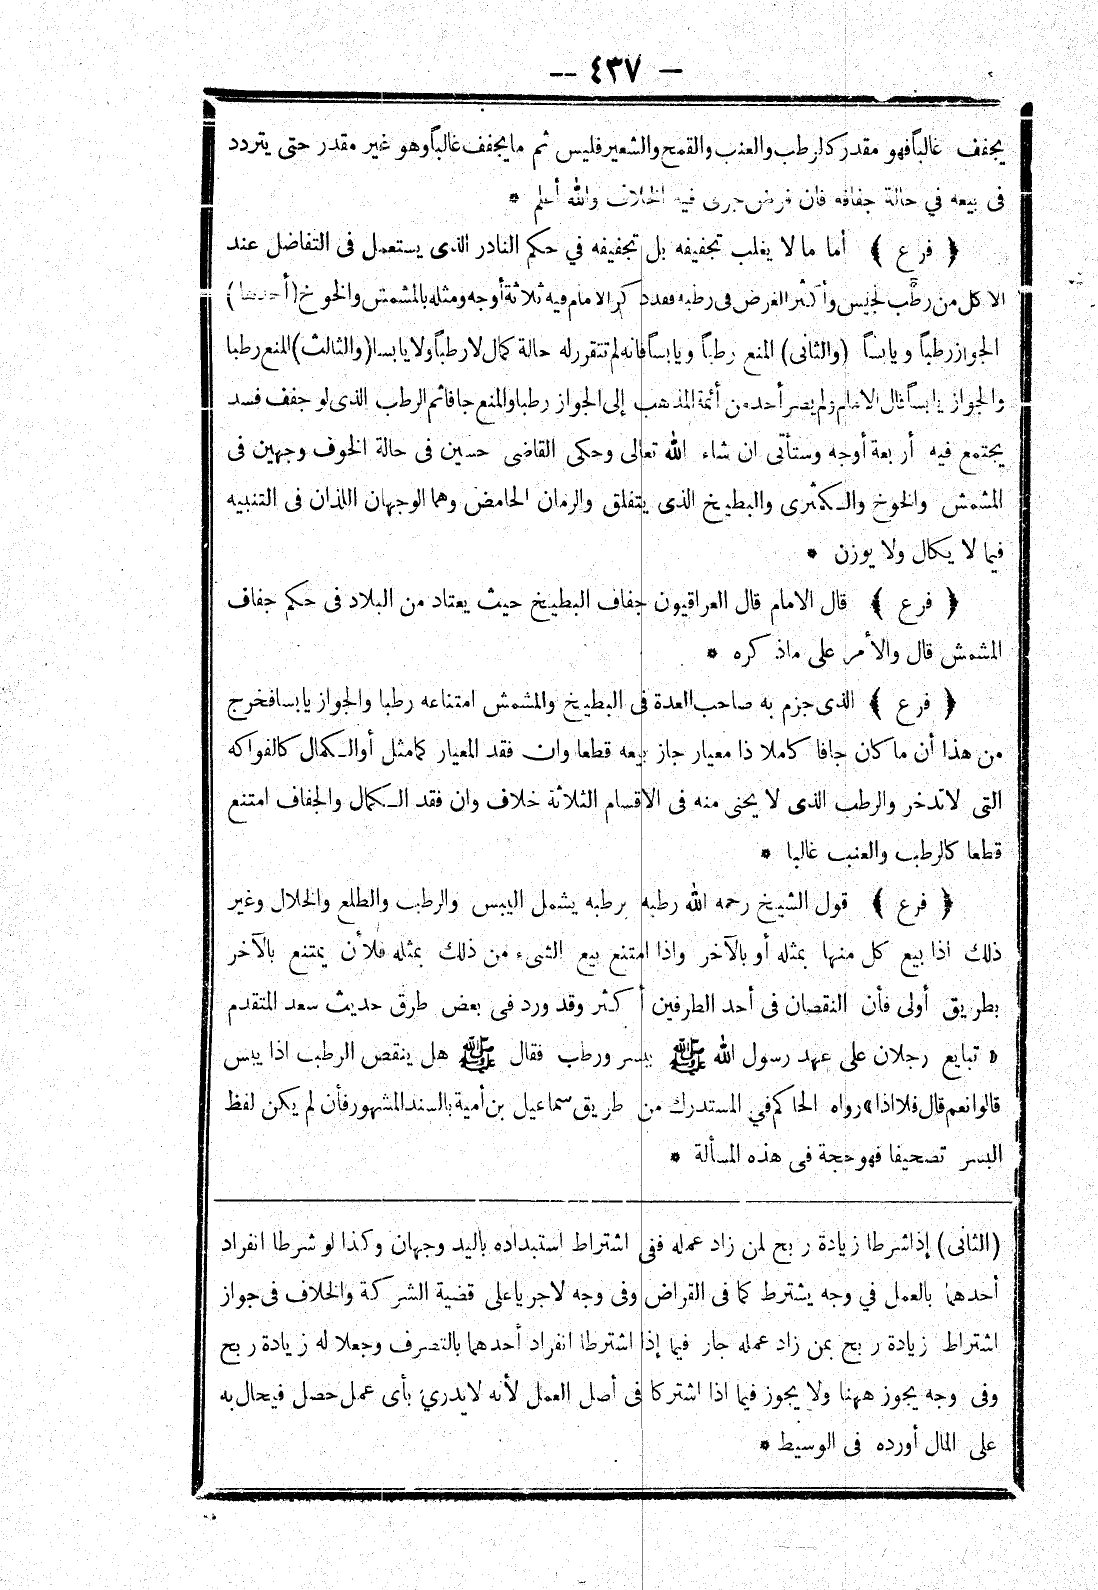 — ٤٣٧ —
يجفف غالباً فهو مقدر كالرطب والعنب والقمح والشعير فليس ثم ما يجفف غالباً وهو غير مقدر حتى يتردد
فى بيعه في حالة جفافه فان فرض جرى فيه الخلاف والله أعلم *
﴿ فرع ﴾ أما ما لا يغلب تجفيفه بل تجفيفه في حكم النادر الذى يستعمل فى التفاضل عند
الاكل من رطب لجنيس وأكثر الغرض فى رطبه فقد ذكر الامام فيه ثلاثة أوجه ومثله بالمشمش والخوخ (أحدها)
الجواز رطباً ويابساً (والثانى) المنع رطباً ويابساً فانه لم تتقرر له حالة كمال لا رطباً ولا يابسا (والثالث) المنع رطبا
والجواز يابساً قال الامام ولم يصر أحد من أئمة المذهب إلى الجواز رطبا والمنع جافا ثم الرطب الذى لو جفف فسد
يجتمع فيه أربعة أوجه وستأتى ان شاء الله تعالى وحكى القاضى حسين فى حالة الخوف وجهين فى
المشمش والخوخ والكمثرى والبطيخ الذى يتفلق والرمان الحامض وهما الوجهان اللذان فى التنبيه
فيما لا يكال ولا يوزن *
﴿ فرع ﴾ قال الامام قال العراقيون جفاف البطيخ حيث يعتاد من البلاد فى حكم جفاف
المشمش قال والأمر على ماذكره *
﴿ فرع ﴾ الذى جزم به صاحب العدة فى البطيخ والمشمش امتناعه رطبا والجواز يابسا فخرج
من هذا أن ما كان جافا كاملا ذا معيار جاز بيعه قطعا وان فقد المعيار كامثل أو الكمال كالفواكه
التى لا تدخر والرطب الذى لا يجئى منه فى الاقسام الثلاثة خلاف وان فقد الكمال والجفاف امتنع
قطعا كالرطب والعنب غالبا *
﴿ فرع ﴾ قول الشيخ رحمه الله رطبه برطبه يشمل اليبس والرطب والطلع والخلال وغير
ذلك اذا بيع كل منها بمثله أو بالآخر واذا امتنع بيع الشىء من ذلك بمثله فلأن يمتنع بالآخر
بطريق أولى فأن النقصان فى أحد الطرفين أكثر وقد ورد فى بعض طرق حديث سعد المتقدم
« تبايع رجلان على عهد رسول الله ﷺ ببسر ورطب فقال ﷺ هل ينقص الرطب اذا يبس
قالوا نعم قال فلا اذا » رواه الحاكم في المستدرك من طريق سماعيل بن أمية بالسند المشهور فأن لم يكن لفظ
البسر تصحيفا فهو حجة فى هذه المسألة *
(الثانى) إذا شرطا زيادة ربح لمن زاد عمله ففى اشتراط استبداده باليد وجهان وكذا لو شرطا انفراد
أحدهما بالعمل في وجه يشترط كما فى القراض وفى وجه لا جريا على قضية الشركة والخلاف فى جواز
اشتراط زيادة ربح بمن زاد عمله جار فيما إذا اشترطا انفراد أحدهما بالتصرف وجعلا له زيادة ربح
وفى وجه يجوز ههنا ولا يجوز فيما اذا اشتركا فى أصل العمل لأنه لا يدرى بأى عمل حصل فيحال به
على المال أورده فى الوسيط *